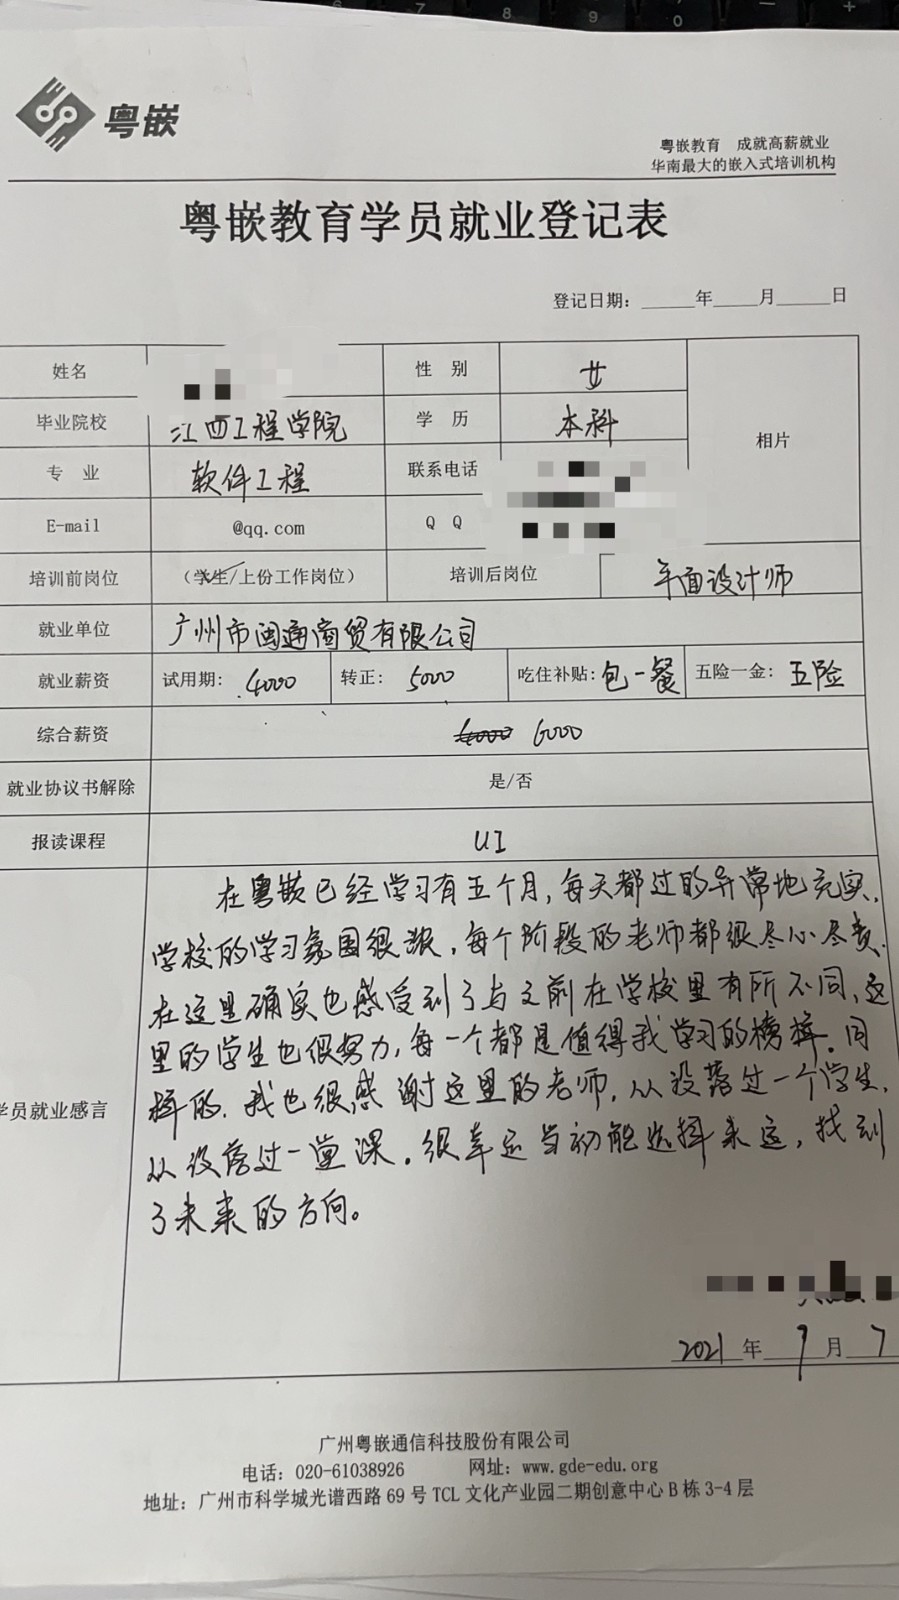 7 8 9 - +
0
粤嵌
粤嵌教育 成就高薪就业
华南最大的嵌入式培训机构
粤嵌教育学员就业登记表
登记日期：_____年_____月_____日
姓名 性 别 女
相片
毕业院校 江西工程学院 学 历 本科
专 业 软件工程 联系电话
E-mail @qq.com Q Q
培训前岗位 （学生/上份工作岗位） 培训后岗位 平面设计师
就业单位 广州市闽通商贸有限公司
就业薪资 试用期：4000 转正：5000 吃住补贴：包一餐 五险一金：五险
综合薪资 6000
就业协议书解除 是/否
报读课程 UI
学员就业感言
在粤嵌已经学习有五个月，每天都过的异常地充实，
学校的学习氛围很浓，每个阶段的老师都很尽心尽责．
在这里确实也感受到了与之前在学校里有所不同，这
里的学生也很努力，每一个都是值得我学习的榜样．同
样的．我也很感谢这里的老师，从没落过一个学生，
从没落过一堂课．很幸运当初能选择来这，找到
了未来的方向。
2021年9月7
广州粤嵌通信科技股份有限公司
电话：020-61038926 网址：www.gde-edu.org
地址：广州市科学城光谱西路 69 号 TCL 文化产业园二期创意中心 B 栋 3-4 层